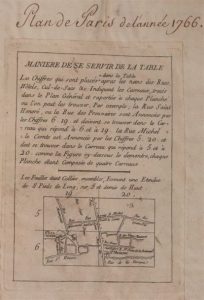 Plan de Paris de l'année 1766.
MANIERE DE SE SERVIR DE LA TABLE
Les Chiffres qui sont placés après les noms des Rues
dans la Table
Hôtels, Cul-de-Sacs &c Indiquent les Carreaux, tracés
dans le Plan Général et raportés à chaque Planche
où l'on peut les trouver. Par exemple, la Rue Saint
Honoré, ou la Rue des Prouvaires sont Annoncée par
les Chiffres 6 19 et doivent se trouver dans le Car
reau qui répond à 6 et à 19 la Rue Michel
le Comte est Annoncée par les Chiffres 5 20 et
doit se trouver dans le Carreau qui répond à 5 et à
20 comme la Figure cy-dessous le démontre, chaque
Planche étant Composée de quatre Carreaux
Les Feuilles étant Collées ensemble, forment une Etendue
de Pieds de Long, sur 8 et demie de Haut
19 20
5
6